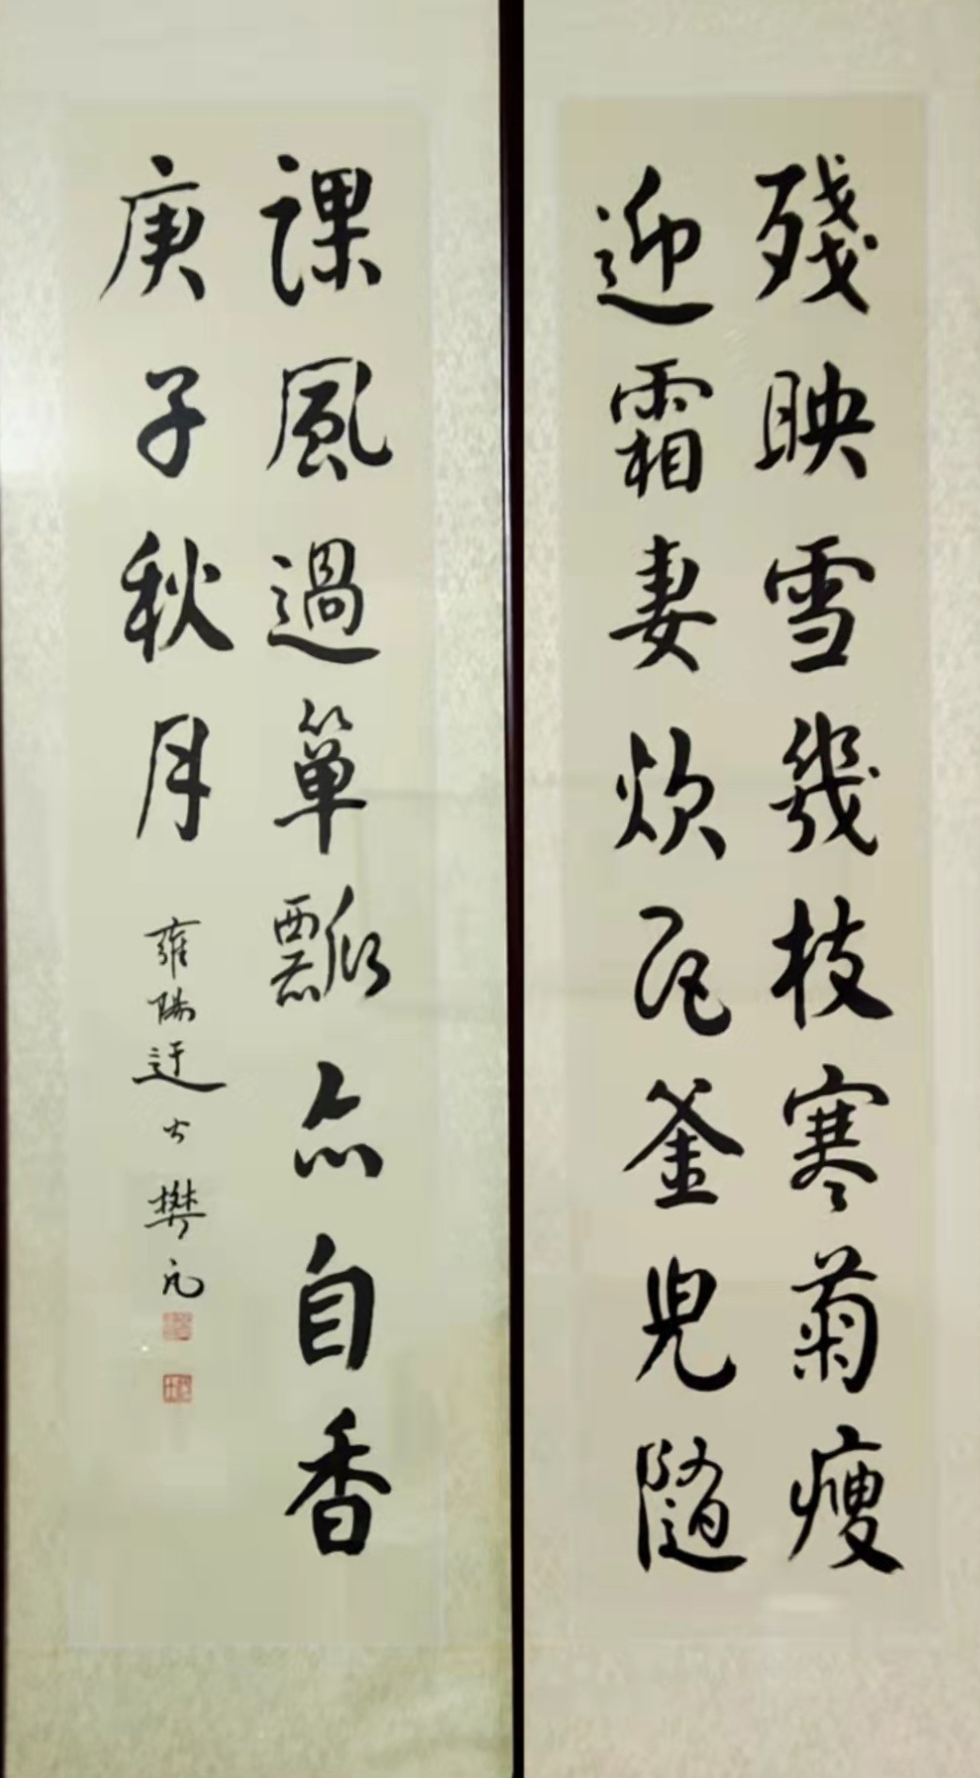 殘映雪幾枝寒菊瘦
迎霜妻炊瓦釜兒隨
課風過簞瓢亦自香
庚子秋月
雍陽迂士樊凡